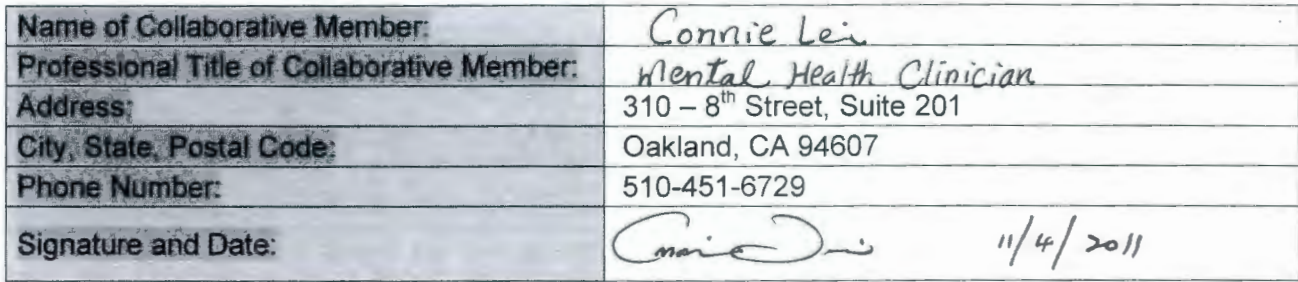 Name of Collaborative Member: Connie Lei
Professional Title of Collaborative Member: Mental Health Clinician
Address: 310 – 8th Street, Suite 201
City, State, Postal Code: Oakland, CA 94607
Phone Number: 510-451-6729
Signature and Date: 11/4/2011